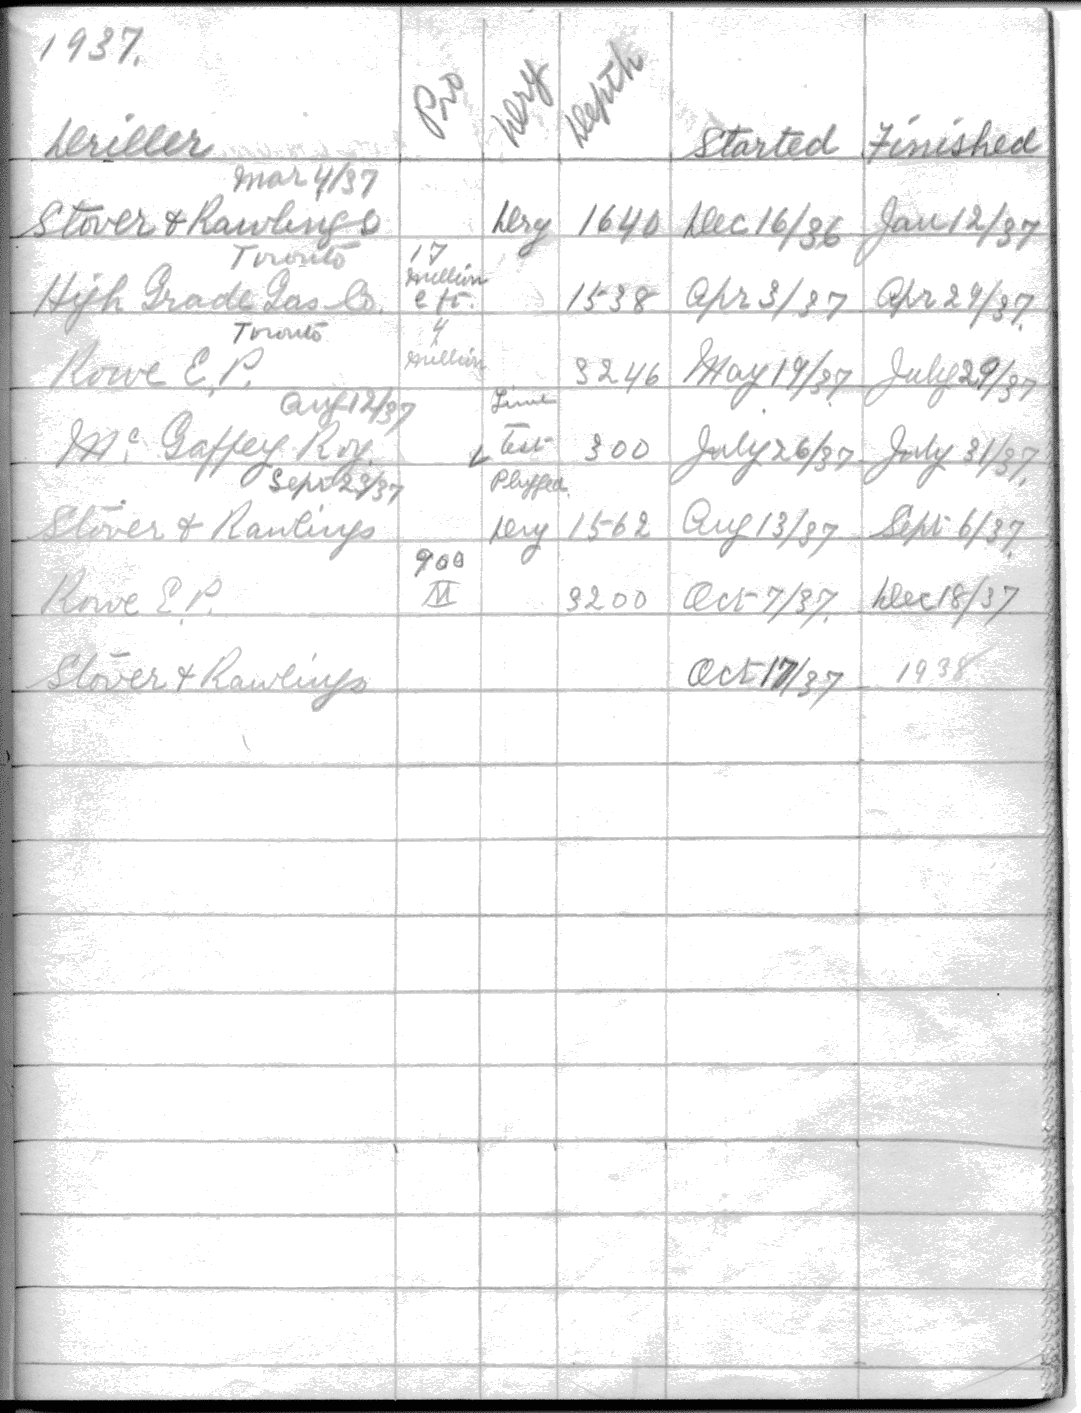 1937.
Driller Pro Dry Depth Started Finished
Mar 4/37
Stover & Rawlings Dry 1640 Dec 16/36 Jan 12/37
Toronto 17 million
High Grade Gas Co. c ft. 1538 Apr 3/37 Apr 29/37.
Toronto 4
Rowe E. P. million 3246 May 19/37. July 29/37
Aug 12/37 Lime
Mc. Gaffey Roy. Test 300 July 26/37 July 31/37.
Sept 23/37 Plugged.
Stover & Rawlings Dry 1562 Aug 13/37 Sept 6/37.
900
Rowe E. P. M 3200 Oct 7/37. Dec 18/37
Stover & Rawlings Oct 17/37 1938